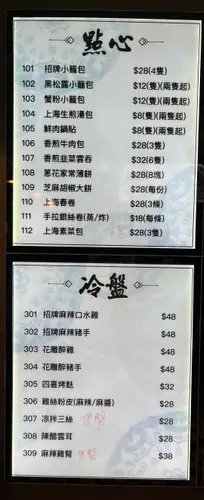 點心
101 招牌小籠包 $28(4隻)
102 黑松露小籠包 $12(隻)(兩隻起)
103 蟹粉小籠包 $12(隻)(兩隻起)
104 上海生煎湯包 $8(隻)(兩隻起)
105 鮮肉鍋貼 $8(隻)(兩隻起)
106 香煎牛肉包 $28(3隻)
107 香煎韭菜雲吞 $32(6隻)
108 蔥花家常薄餅 $28(8塊)
109 芝麻胡椒大餅 $28(每份)
110 上海春卷 $28(3條)
111 手拉銀絲卷(蒸/炸) $18(每條)
112 上海素菜包 $28(3隻)
冷盤
301 招牌麻辣口水雞 $48
302 招牌麻辣豬手 $48
303 花雕醉雞 $48
304 花雕醉豬手 $48
305 四喜烤麩 $32
306 雞絲粉皮(麻辣/麻醬) $28
307 凉拌三絲 $28
308 陳醋雲耳 $28
309 麻辣雞腎 $38